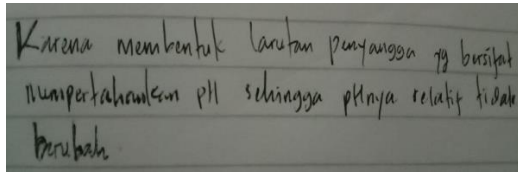 Karena membentuk larutan penyangga yg bersifat
mempertahankan pH sehingga pHnya relatif tidak
berubah